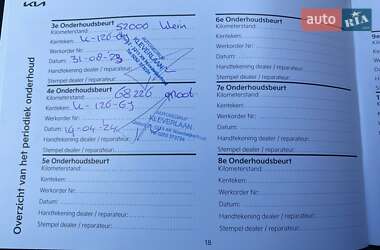 KIA
Overzicht van het periodiek onderhoud
3e Onderhoudsbeurt
Kilometerstand: 52000 klein
Kenteken: K-126-GJ
Werkorder Nr:
Datum: 31-08-23
Handtekening dealer / reparateur:
Stempel dealer / reparateur:
KLEVERLAAN
4e Onderhoudsbeurt
Kilometerstand: 68226 groot
Kenteken: K-126-GJ
Werkorder Nr:
Datum: 19-04-24
Handtekening dealer / reparateur:
Stempel dealer / reparateur:
KLEVERLAAN
5e Onderhoudsbeurt
Kilometerstand:
Kenteken:
Werkorder Nr:
Datum:
Handtekening dealer / reparateur:
Stempel dealer / reparateur:
6e Onderhoudsbeurt
Kilometerstand:
Kenteken:
Werkorder Nr:
Datum:
Handtekening dealer / reparateur:
Stempel dealer / reparateur:
7e Onderhoudsbeurt
Kilometerstand:
Kenteken:
Werkorder Nr:
Datum:
Handtekening dealer / reparateur:
Stempel dealer / reparateur:
8e Onderhoudsbeurt
Kilometerstand:
Kenteken:
Werkorder Nr:
Datum:
Handtekening dealer / reparateur:
Stempel dealer / reparateur:
18
AUTO RIA